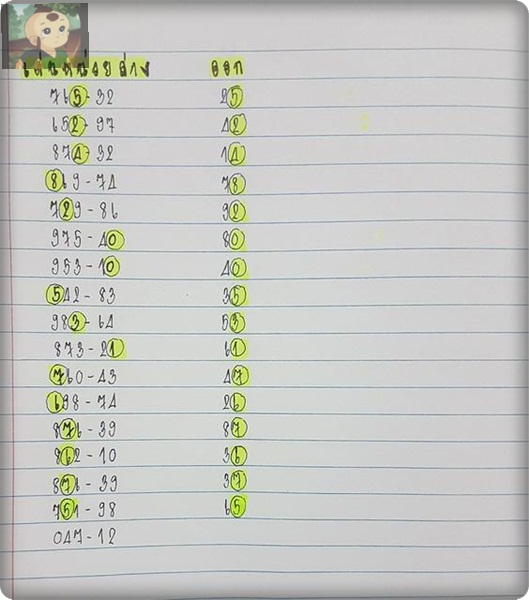 เด่นหน่วยล่าง ออก
765-32 25
652-97 42
874-32 14
869-74 78
729-86 92
975-40 80
953-10 40
542-83 35
983-64 53
873-21 61
760-43 47
698-74 26
876-39 87
862-10 36
876-39 37
751-98 65
047-12